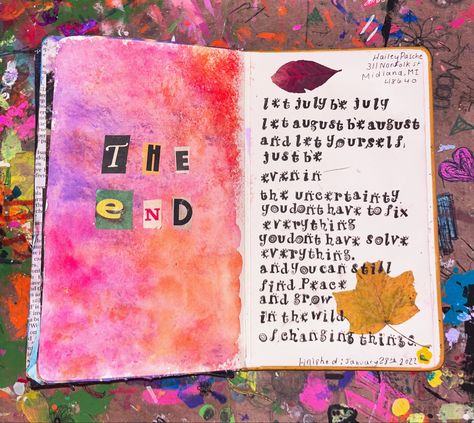 THE
eND
Hailey Pasche
311 Norfolk St
Midland, MI
48640
let july be july
let august be august
and let yourself,
just be
even in
the uncertainty.
you dont have to fix
everything
you dont have solve
everything.
and you can still
find Peace
and grow
in the wild
of changing things.
finished: January 29th 2022